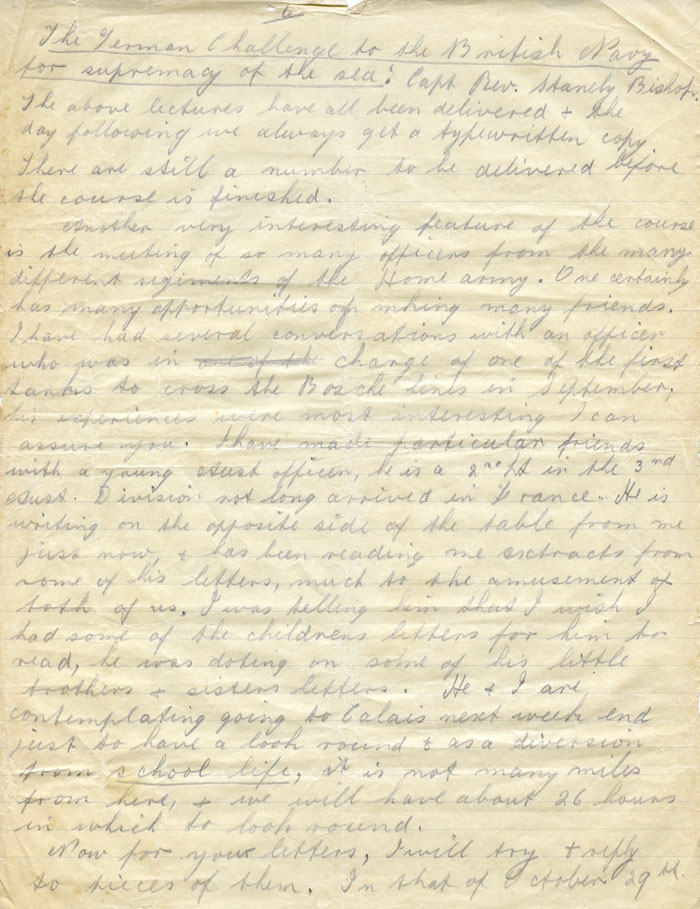 6
The German Challenge to the British Navy
for supremacy of the sea: Capt Rev. Stanely Bishop.
The above lectures have all been delivered + the
day following we always get a typewritten copy
There are still a number to be delivered before
the course is finished.
Another very interesting feature of the course
is the meeting of so many officers from the many
different regiments of the Home army. One certainly
has many opportunities of making many friends.
I have had several conversations with an officer
who was in one of the charge of one of the first
tanks to cross the Bosche lines in September,
his experiences were most interesting I can
assure you. I have made particular friends
with a young Aust officer, he is a 2nd Lt in the 3rd
Aust. Division not long arrived in France. He is
writing on the opposite side of the table from me
just now, + has been reading me extracts from
some of his letters, much to the amusement of
both of us. I was telling him that I wish I
had some of the childrens letters for him to
read, he was doting on some of his little
brothers + sisters letters. He + I are
contemplating going to Calais next week end
just to have a look round & as a diversion
from school life, it is not many miles
from here, + we will have about 26 hours
in which to look round.
Now for your letters, I will try + reply
to pieces of them. In that of October 29th.